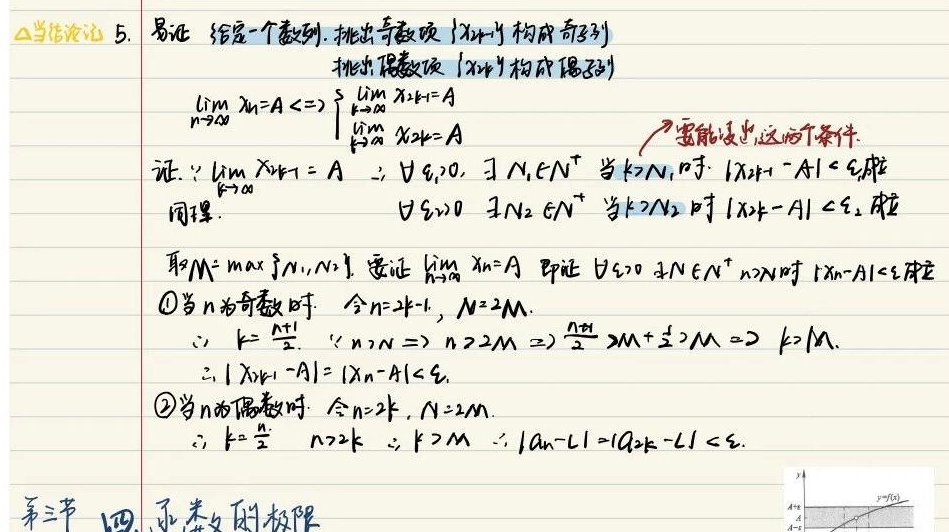 △当结论记 5. 易证 给定一个数列. 挑出奇数项 {x₂ₖ₋₁} 构成奇子列
挑出偶数项 {x₂ₖ} 构成偶子列
lim n→∞ xₙ=A <=> { lim k→∞ x₂ₖ₋₁=A
lim k→∞ x₂ₖ=A
↗要能得出这两个条件.
证. ∵ lim k→∞ x₂ₖ₋₁ = A ∴ ∀ ε₁>0, ∃ N₁∈N⁺ 当k>N₁时. |x₂ₖ₋₁ - A| < ε₁成立
同理. ∀ε₂>0 ∃N₂∈N⁺ 当k>N₂时 |x₂ₖ-A| <ε₂成立
取M=max{N₁,N₂}. 要证 lim n→∞ xₙ=A 即证 ∀ε>0 ∃N∈N⁺ n>N时 |xₙ-A|<ε成立
①当n为奇数时. 令n=2k-1, N=2M.
∴ k=(n+1)/2. ∵n>N => n>2M => (n+1)/2 >M+1/2>M => k>M.
∴|x₂ₖ₋₁-A|=|xₙ-A|<ε.
②当n为偶数时. 令n=2k, N=2M.
∴ k=n/2 n>2k ∴ k>M ∴|aₙ-L|=|a₂ₖ-L|<ε.
第三节 四. 函数的极限
y
y=f(x)
A+ε
A
A-ε